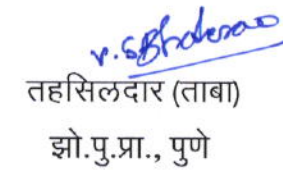 तहसिलदार (ताबा)
झो.पु.प्रा., पुणे